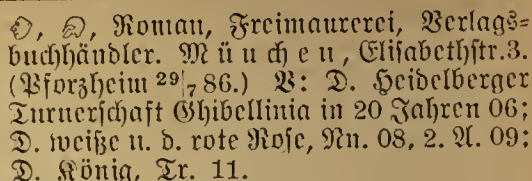 Roman, Freimaurerei, Verlags=
buchhändler. München, Elisabethstr. 3.
(Pforzheim 29|7 86.) V: D. Heidelberger
Turnerschaft Ghibellinia in 20 Jahren 06;
D. weiße u. d. rote Rose, Nn. 08, 2. A. 09;
D. König, Tr. 11.